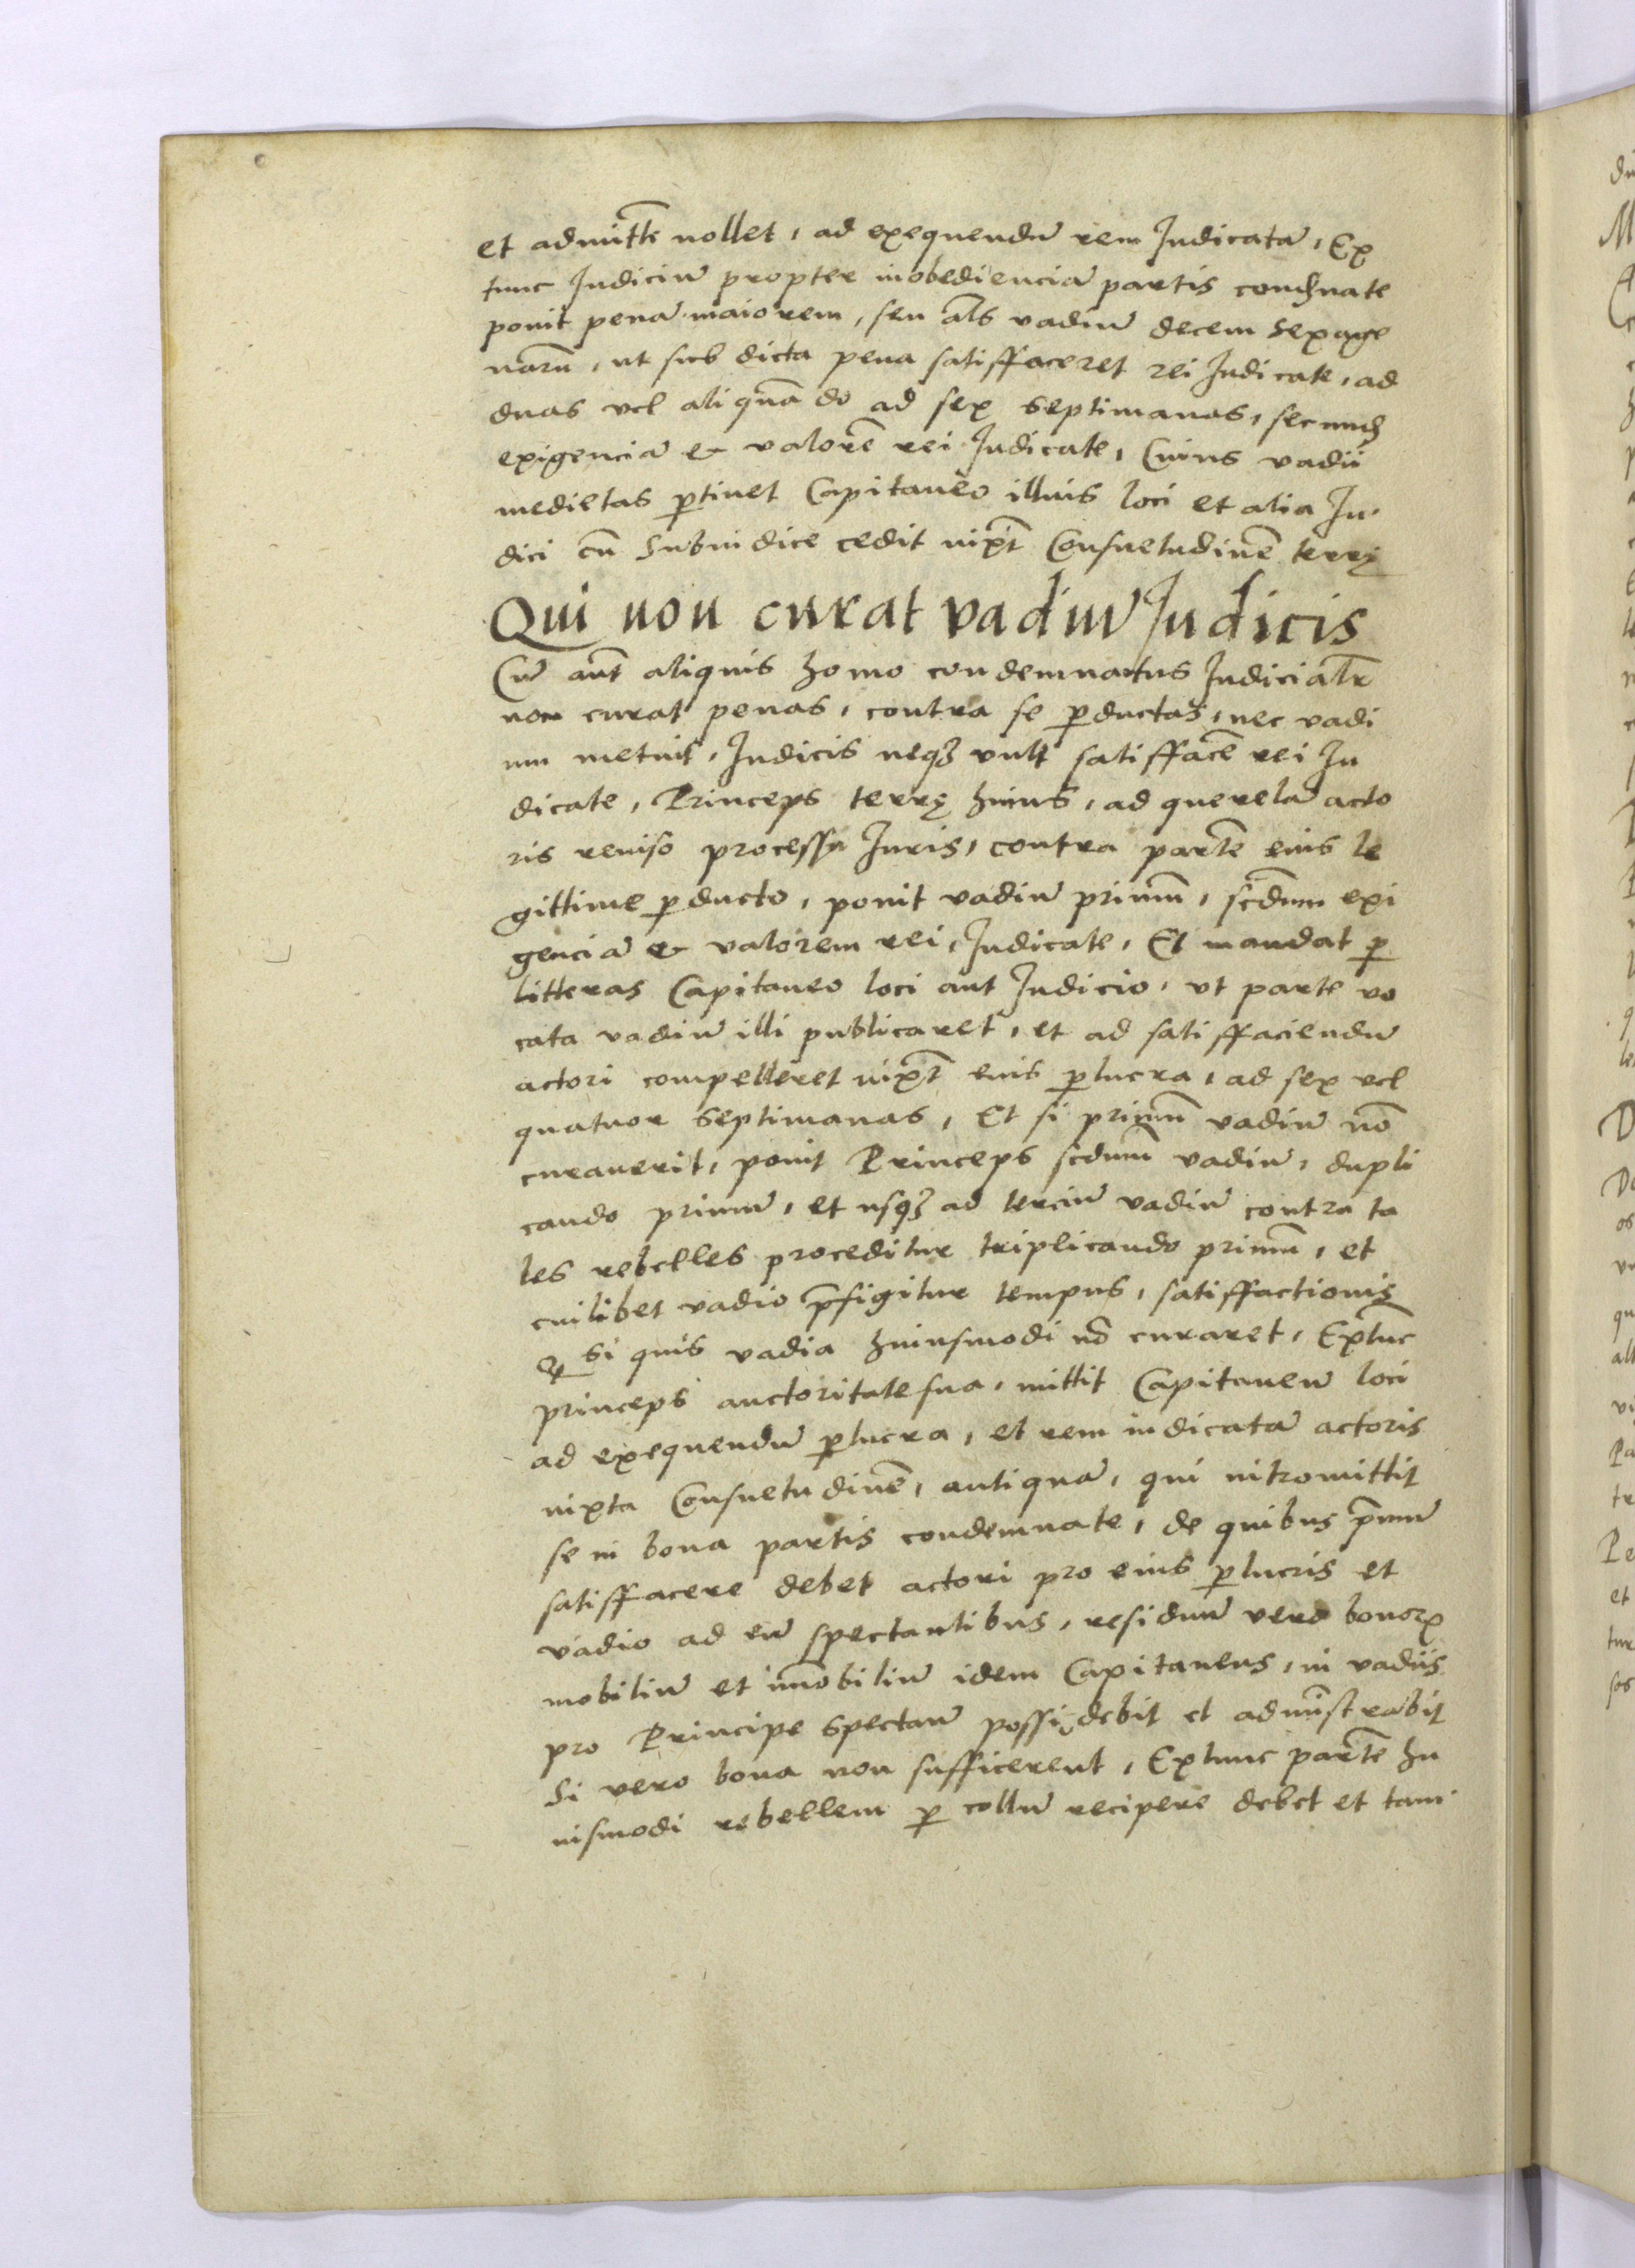 et admittē nollet, ad exequendū rem Judicatā, Ex
tunc Judiciū propter inobedienciā partis condēnate
ponit penā maiorem, seu als vadiū decem sexage
narū, ut sub dicta pena satisffaceret rei Judicate, ad
duas vel aliquādo ad sex septimanas, secund
exigenciā et valorē rei Judicate, Cuius vadii
medietas ptinet Capitaneo illius loci et alia Ju
dici cū Subiudice cedit iuxt Consuetudinē terrę
Qui non curat vadiū Judicis
Cū aut aliquis homo condemnatus Judicialr
non curat penas, contra se pductas, nec vadi
um metuit, Judicis neqꝫ vult satisffacē rei Ju
dicate, Princeps terrę huius, ad querelā acto
ris reuiso processu Juris, contra partē eius le
gittime pducto, ponit vadiū primū, scdum exi
genciā et valorem rei Judicate, Et mandat p
litteras Capitaneo loci aut Judicio, ut parte vo
cata vadiū illi publicaret, et ad satisffaciendū
actori compelleret iuxt eius plucra, ad sex vel
quatuor septimanas, Et si primū vadiū nō
curauerit, ponit Princeps scdum vadiū, dupli
cando primū, et usqꝫ ad terciū vadiū contra ta
les rebelles proceditur triplicando primū, et
cuilibet vadio pfigitur tempus, satisffactionis
Et si quis vadia huiusmodi nō curaret, Extunc
princeps auctoritate sua, mittit Capitaneū loci
ad exequendū plucra, et rem iudicatā actoris
iuxta Consuetudinē, antiquā, qui intromittit
se in bona partis condemnate, de quibus pmū
satisffacere debet actori pro eius plucris et
vadio ad eū spectantibus, residuū vero bonoꝝ
mobiliū et imobiliū idem Capitaneus, in vadiis
pro Principe spectan possidebit et administrabit
Si vero bona non sufficerent, Extunc partē hu
iusmodi rebellem p collū recipere debet et tam